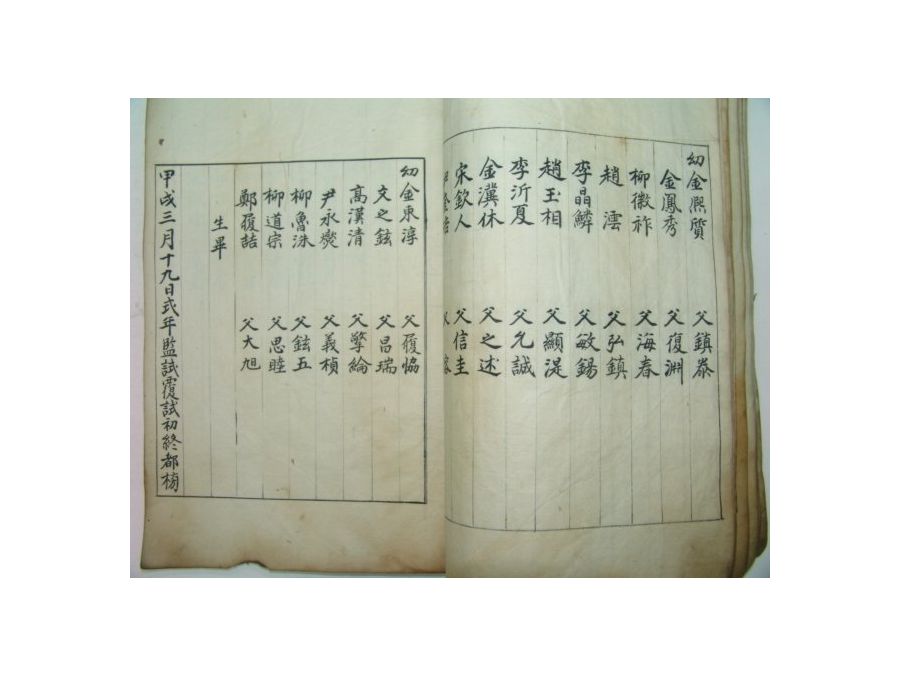 幼金熙質 父鎮泰
金鳳秀 父復淵
柳徽祚 父海春
趙澐 父弘鎮
李晶鱗 父敏錫
趙玉相 父顯湜
李沂夏 父允誠
金漢休 父之述
宋欽人 父信圭
幼金東淳 父履恊
文之鉉 父昌瑞
高漢清 父擎綸
尹永爕 父義楨
柳魯洙 父鉉五
柳道宗 父思睦
鄭履喆 父大旭
生畢
甲戌三月十九日式年監試覆試初終都榜